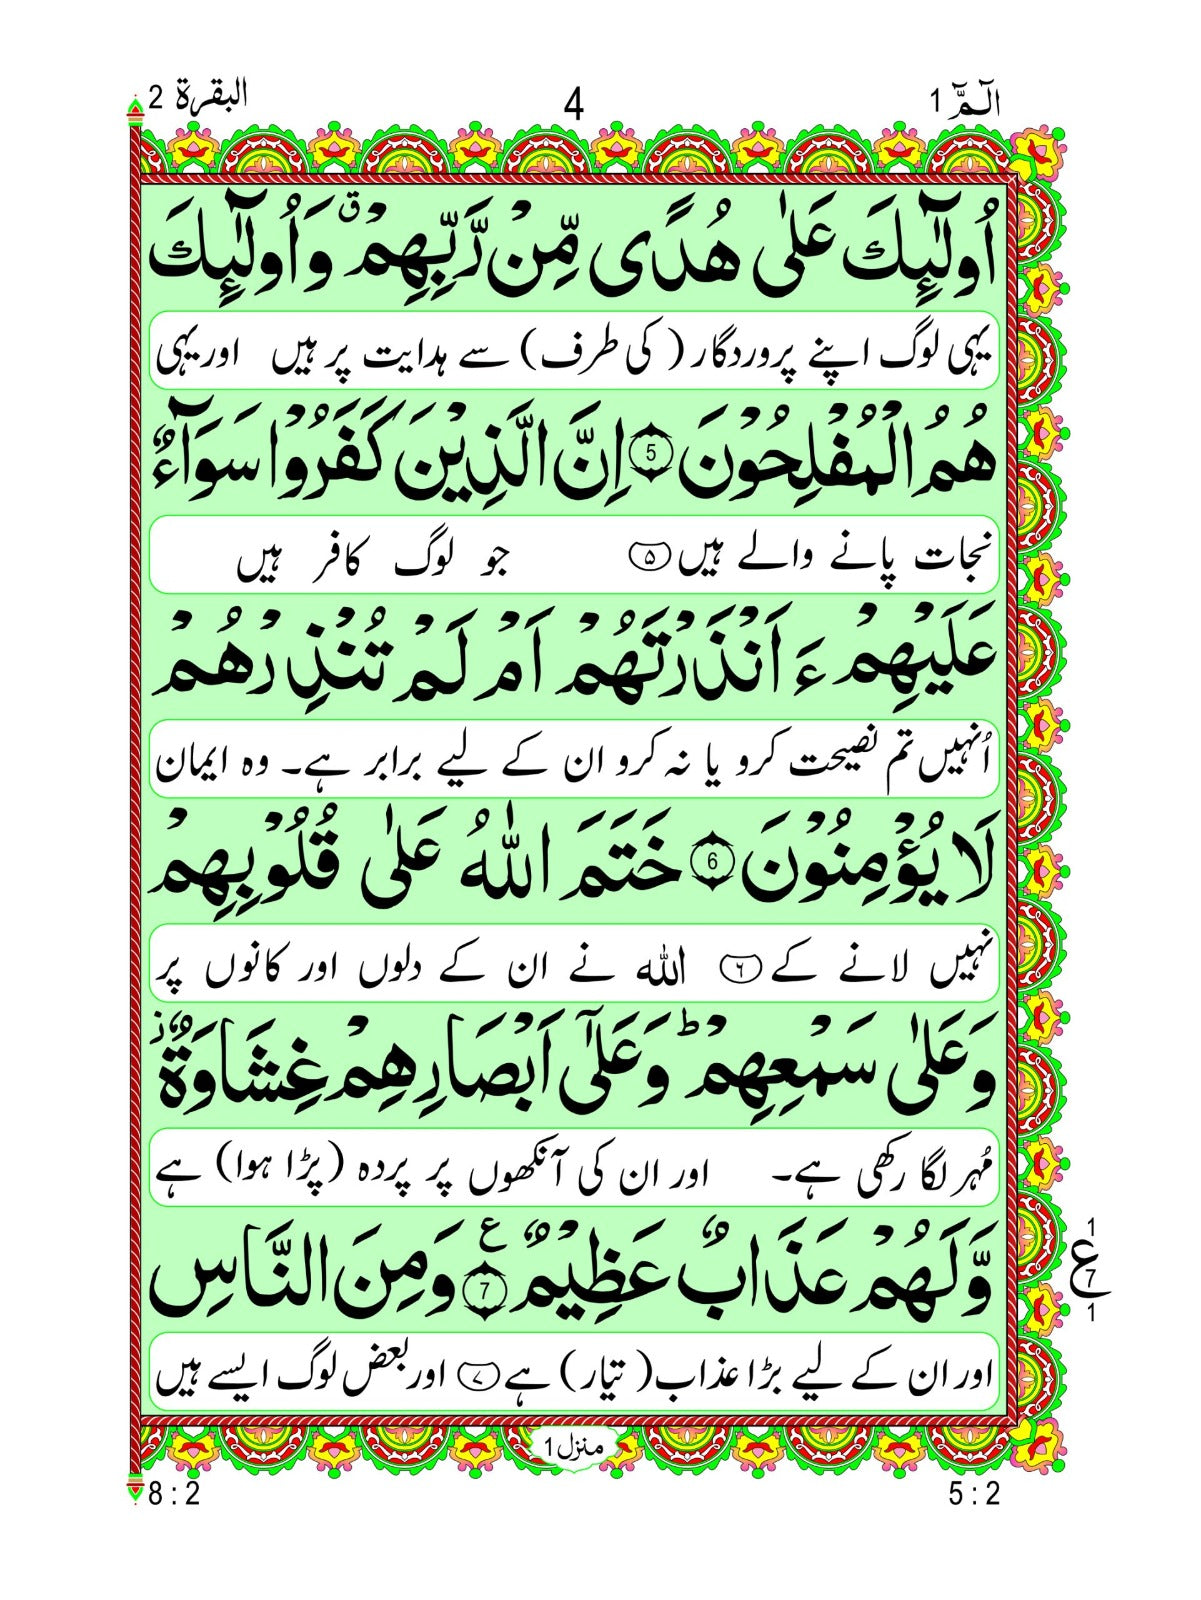 الٓمّٓ 1
4
البقرة 2
اُولٰٓئِكَ عَلٰى هُدًى مِّنْ رَّبِّهِمْ ۗ وَاُولٰٓئِكَ
یہی لوگ اپنے پروردگار (کی طرف) سے ہدایت پر ہیں اور یہی
هُمُ الْمُفْلِحُوْنَ 5 اِنَّ الَّذِيْنَ كَفَرُوْا سَوَآءٌ
نجات پانے والے ہیں ۵ جو لوگ کافر ہیں
عَلَيْهِمْ ءَاَنْذَرْتَهُمْ اَمْ لَمْ تُنْذِرْهُمْ
اُنہیں تم نصیحت کرو یا نہ کرو ان کے لیے برابر ہے۔ وہ ایمان
لَا يُؤْمِنُوْنَ 6 خَتَمَ اللّٰهُ عَلٰى قُلُوْبِهِمْ
نہیں لانے کے ۶ اللہ نے ان کے دلوں اور کانوں پر
وَعَلٰى سَمْعِهِمْ ؕ وَعَلٰٓى اَبْصَارِهِمْ غِشَاوَةٌ ز
مُہر لگا رکھی ہے۔ اور ان کی آنکھوں پر پردہ (پڑا ہوا) ہے
وَّلَهُمْ عَذَابٌ عَظِيْمٌ 7 ع وَمِنَ النَّاسِ
1 ع 7 1
اور ان کے لیے بڑا عذاب (تیار) ہے ۷ اور بعض لوگ ایسے ہیں
منزل 1
5 : 2
8 : 2